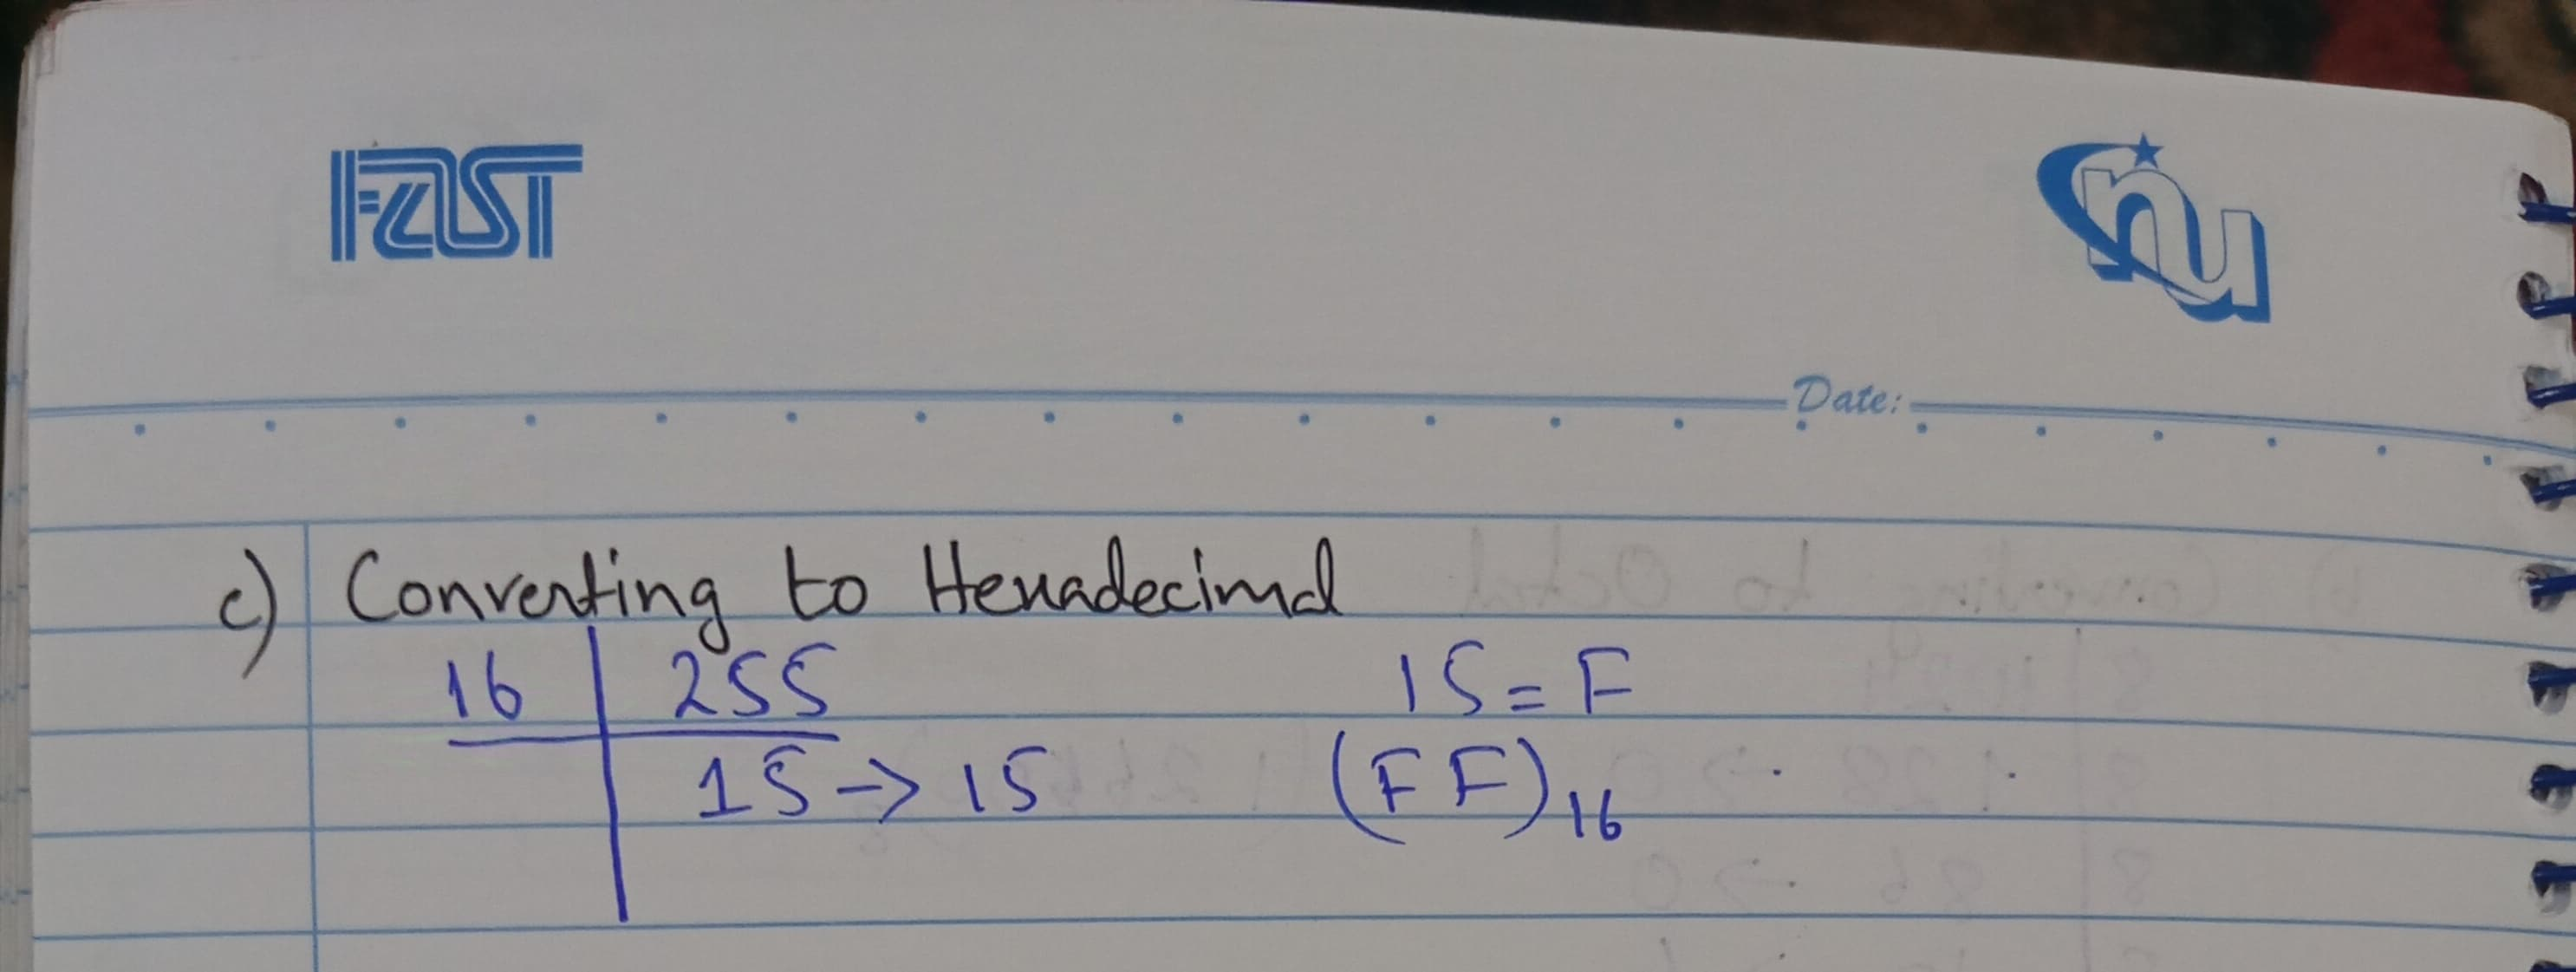 FAST
nu
Date:
c) Converting to Hexadecimal
16 | 255
15 → 15
15 = F
(FF)16